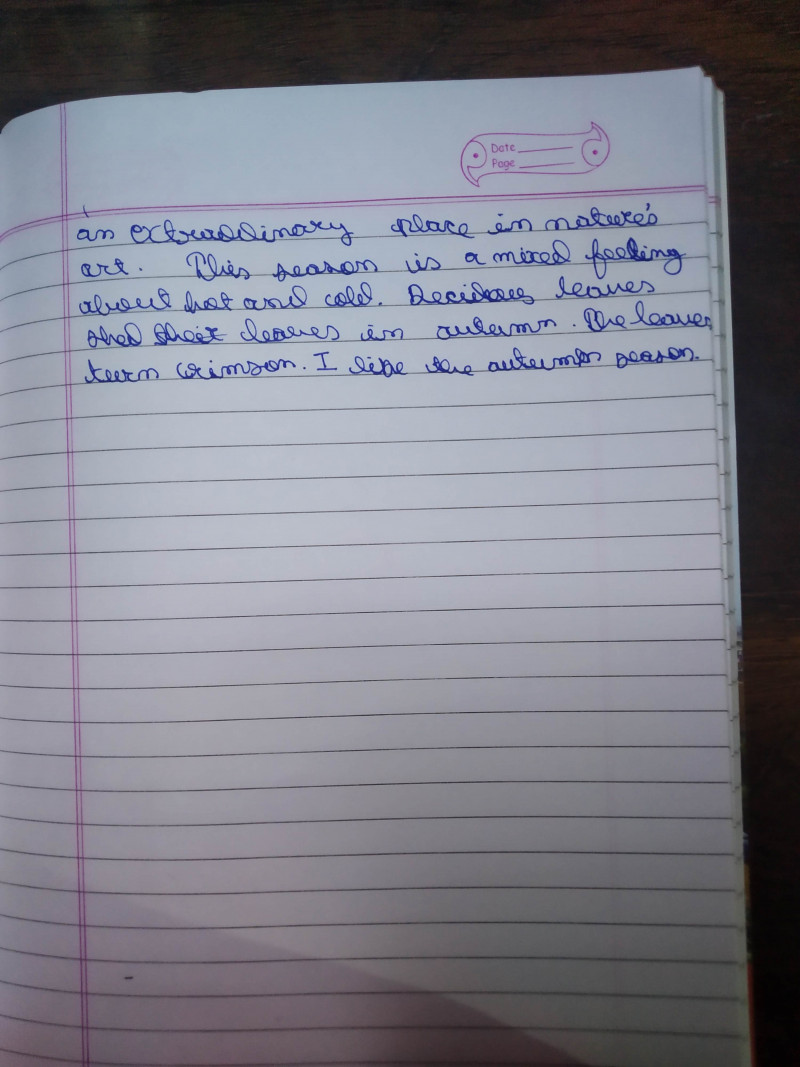 Date
Page
an extraordinary place in nature's
art. This season is a mixed feeling
about hot and cold. Decidous leaves
shed their leaves in autumn. The leaves
turn crimson. I like the autumn season.